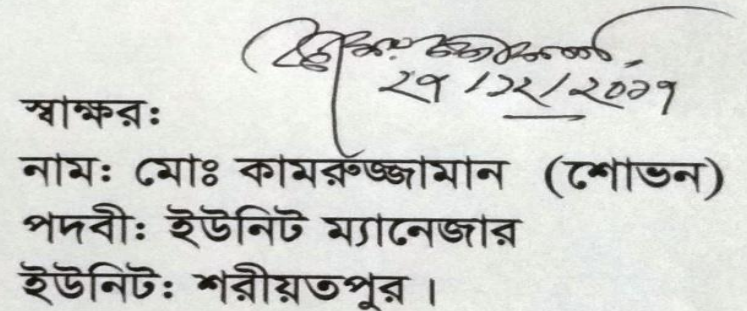 ২৭/১২/২০১৭
স্বাক্ষর:
নাম: মোঃ কামরুজ্জামান (শোভন)
পদবী: ইউনিট ম্যানেজার
ইউনিট: শরীয়তপুর।